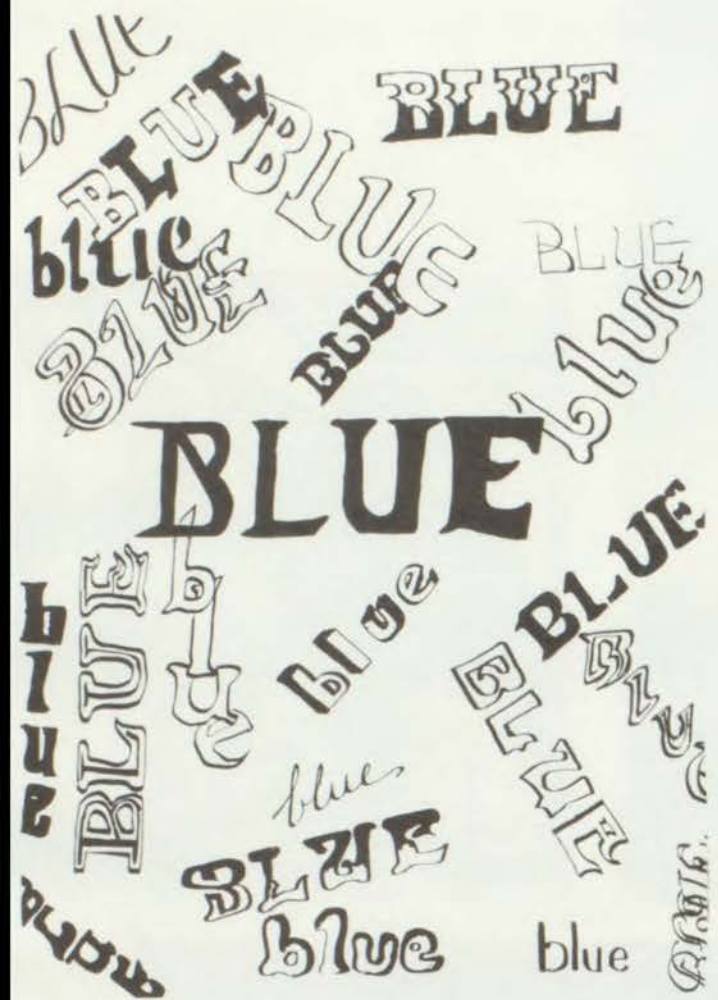 BLUE
BLUE
BLUE
BLUE
blue
BLUE
BLUE
BLUE
blue
BLUE
BLUE
blue
blue
BLUE
blue
BLUE
BLUE
BLUE
blue
BLUE
blue
blue
blue
BLUE